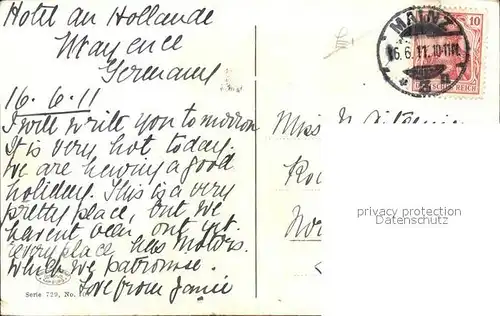 Hotel an Hollande
Mayence
Germany
16. 6. 11
I will write you tomorrow
It is very hot today.
We are having a good
holiday. This is a very
pretty place, but we
havent been out yet.
Every place has motors.
which we patronise.
Love from Janie
Serie 729, No.
MAINZ
16.6.11.10-11V.
10
DEUTSCHES REICH
Miss
privacy protection
Datenschutz